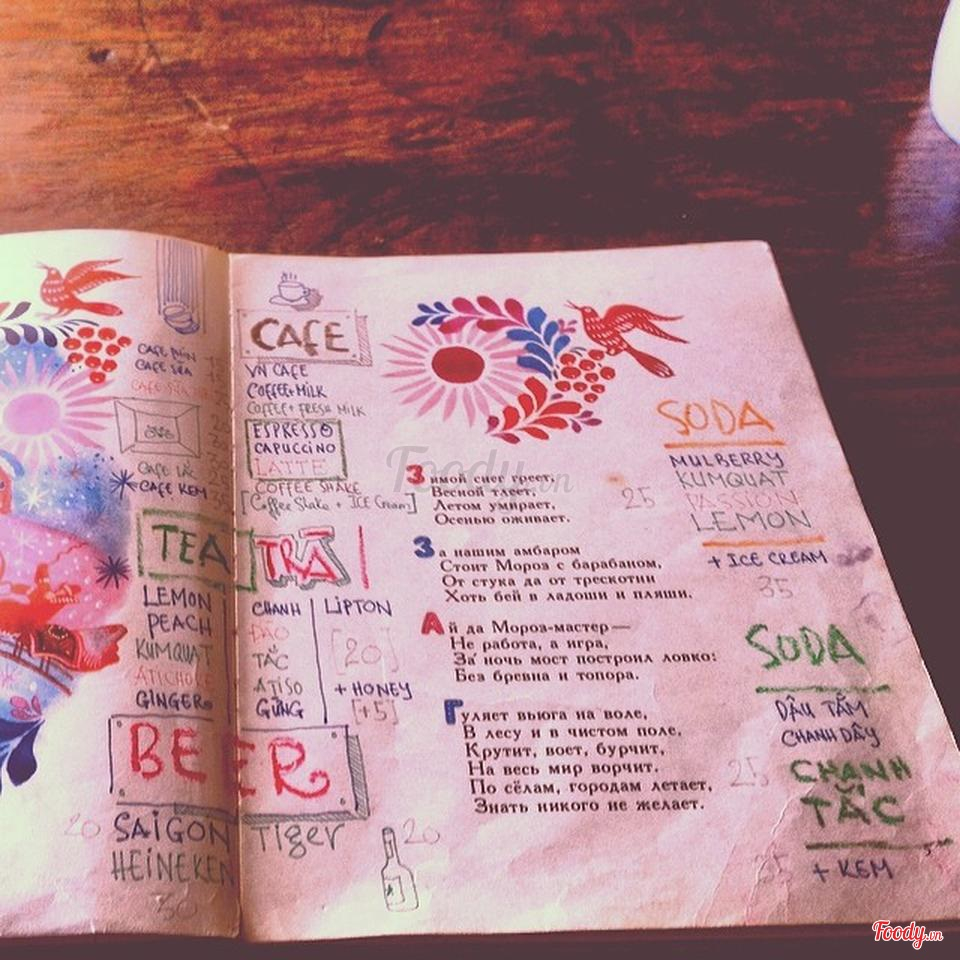 CAFE ĐEN
CAFE SỮA
CAFE SỮA
CAFE LẮC
CAFE KEM
CAFE
VN CAFE
COFFEE+MILK
COFFEE+FRESH MILK
ESPRESSO
CAPUCCINO
LATTE
COFFEE SHAKE
[Coffee Shake + ICE Cream]
TEA TRÀ
LEMON
PEACH
KUMQUAT
ATICHOKE
GINGER
CHANH
ĐÀO
TẮC
ATISO
GỪNG
LIPTON
[20]
+ HONEY
[+5]
BEER
20 SAIGON Tiger 20
HEINEKEN
30
Зимой снег греет,
Весной тлеет,
Летом умирает,
Осенью оживает.
За нашим амбаром
Стоит Мороз с барабаном,
От стука да от трескотни
Хоть бей в ладоши и пляши.
Ай да Мороз-мастер—
Не работа, а игра,
За ночь мост построил ловко:
Без бревна и топора.
Гуляет вьюга на воле,
В лесу и в чистом поле,
Крутит, воет, бурчит,
На весь мир ворчит.
По сёлам, городам летает,
Знать никого не желает.
SODA
MULBERRY
KUMQUAT
25 PASSION
LEMON
+ ICE CREAM
35
SODA
DÂU TẰM
CHANH DÂY
25 CHANH
TẮC
35 + KEM
Foody.vn
Foody.vn